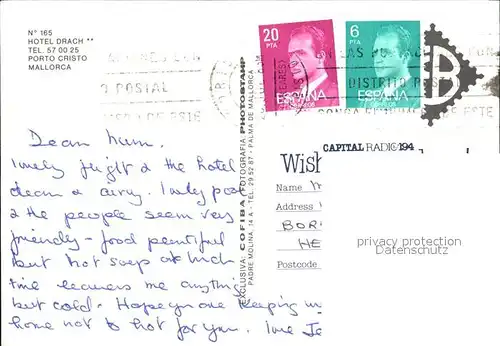 Nº 165
HOTEL DRACH **
TEL. 57 00 25
PORTO CRISTO
MALLORCA
20
PTA
ESPAÑA
6
PTA
ESPAÑA
POSTAL
DISTRITO POSTAL
B
EXCLUSIVA: COFIBA - FOTOGRAFIA PHOTOSTAMP
PADRE MOLINA, 14 A - TEL. 29 52 87 - PALMA DE MALLORCA
CAPITAL RADIO 194
Wish
Name M
Address
BOR
HE
Postcode
privacy protection
Datenschutz
Dear Mum.
Lovely flight & the hotel
clean & airy. Lovely pool
& the people seem very
friendly - food plentiful
but hot soup at lunch
time leaves me anything
but cold. Hope you are keeping
home not to hot for you. love